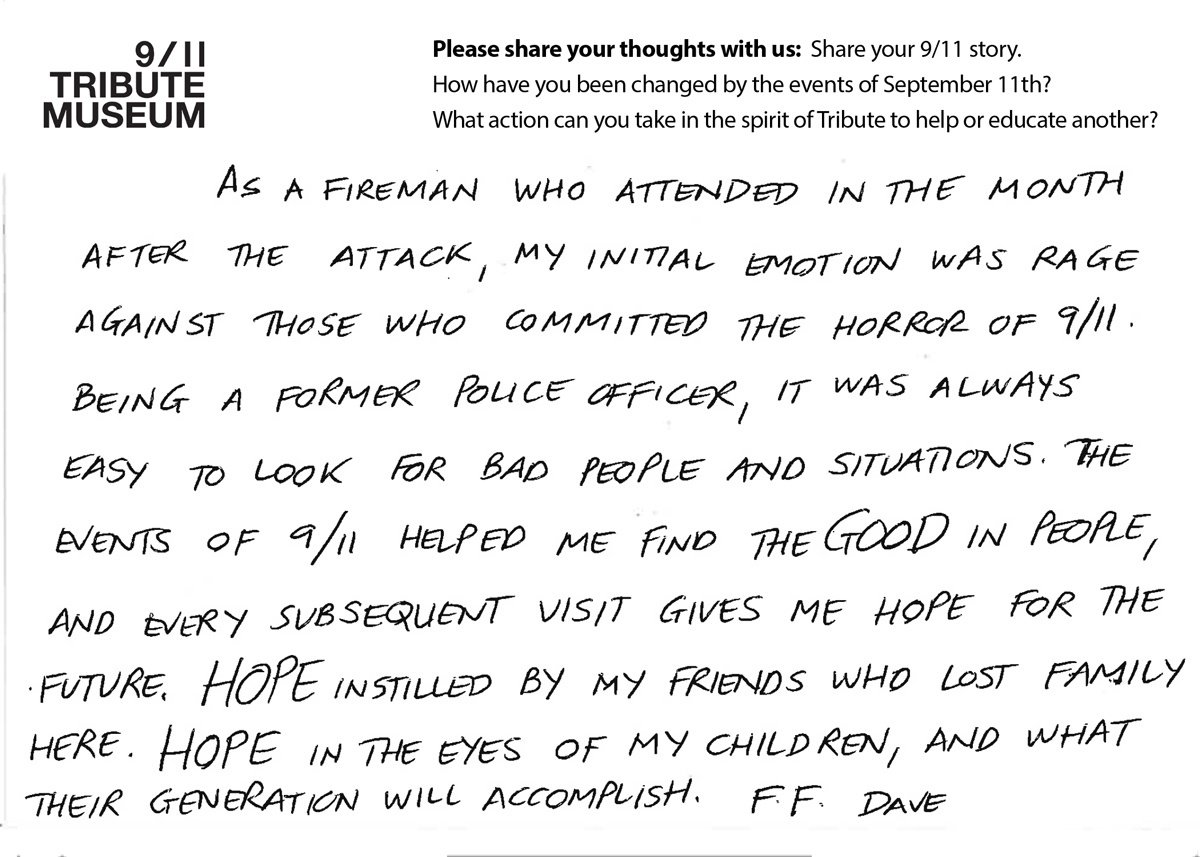 9/11
TRIBUTE
MUSEUM
Please share your thoughts with us: Share your 9/11 story.
How have you been changed by the events of September 11th?
What action can you take in the spirit of Tribute to help or educate another?
AS A FIREMAN WHO ATTENDED IN THE MONTH
AFTER THE ATTACK, MY INITIAL EMOTION WAS RAGE
AGAINST THOSE WHO COMMITTED THE HORROR OF 9/11.
BEING A FORMER POLICE OFFICER, IT WAS ALWAYS
EASY TO LOOK FOR BAD PEOPLE AND SITUATIONS. THE
EVENTS OF 9/11 HELPED ME FIND THE GOOD IN PEOPLE,
AND EVERY SUBSEQUENT VISIT GIVES ME HOPE FOR THE
FUTURE. HOPE INSTILLED BY MY FRIENDS WHO LOST FAMILY
HERE. HOPE IN THE EYES OF MY CHILDREN, AND WHAT
THEIR GENERATION WILL ACCOMPLISH. F.F. DAVE